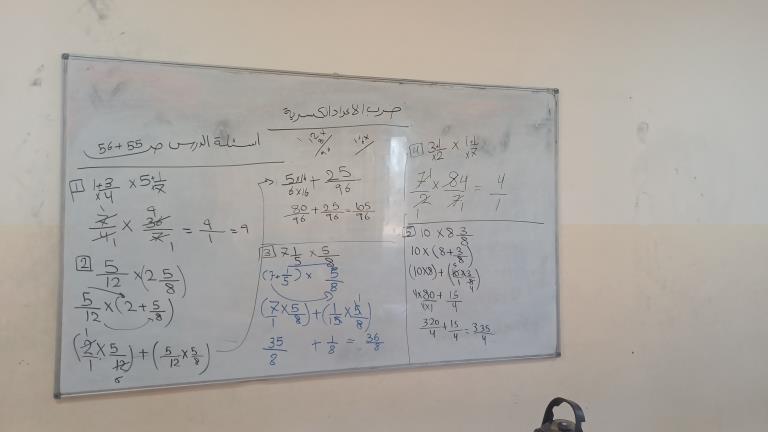 ضرب الاعداد الكسرية
اسئلة الدرس ص 55+56
1 1+3/×4 × 5+1/×7
7/4 × 36/7 = 9/1 = 9
2 5/12 × (2 5/8)
5/12 × (2 + 5/8)
(2/1 × 5/12) + (5/12 × 5/8)
5×16/6×16 + 25/96
80/96 + 25/96 = 105/96
3 7 1/5 × 5/8
(7+1/5) × 5/8
(7/1 × 5/8) + (1/5 × 5/8)
35/8 + 1/8 = 36/8
4 3+1/×2 × 1+1/×7
7/2 × 8/7 = 4/1
5 10 × 8 3/8
10 × (8 + 3/8)
(10×8) + (10/1 × 3/8)
4×80/4×1 + 15/4
320/4 + 15/4 = 335/4